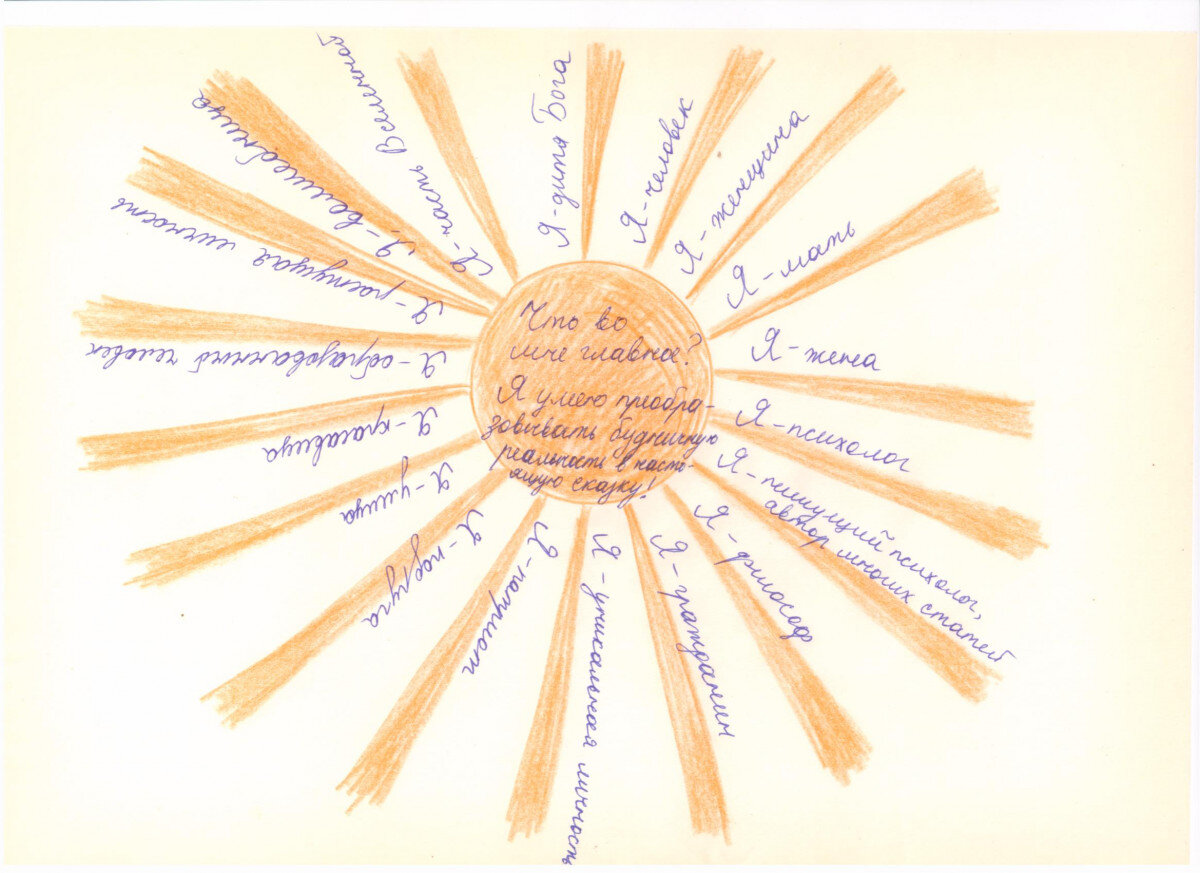 Что во
мне главное?
Я умею преобра-
зовывать будничную
реальность в насто-
ящую сказку!
Я - дитя Бога
Я - человек
Я - женщина
Я - мать
Я - жена
Я - психолог
Я - пишущий психолог,
автор многих статей
Я - философ
Я - гражданин
Я - уникальная личность
Я - патриот
Я - подруга
Я - умница
Я - красавица
Я - образованный человек
Я - растущая личность
Я - волшебница
Я - часть Вселенной